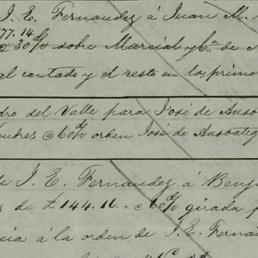 J. E. Fernandez á Juan M.
77.14
@ 30 d/ sobre Marcial y Ca. de
al contado y el resto en los primer
dro del Valle para José de Ansoa
@ 60 d/ orden José de Ansoateg
J. E. Fernandez á Benj
s de £ 144.16. - 60 d/ girada p
á la orden de J. E. Ferna